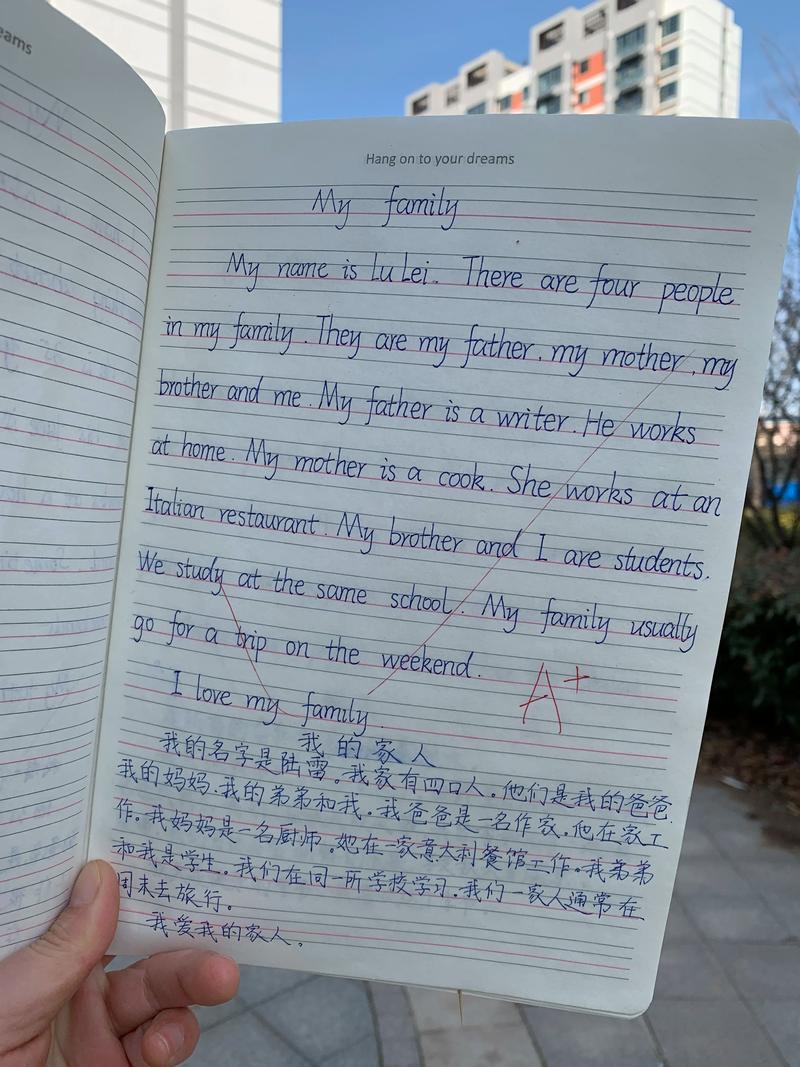 eams
Hang on to your dreams
My family
My name is Lu Lei. There are four people
in my family. They are my father, my mother, my
brother and me. My father is a writer. He works
at home. My mother is a cook. She works at an
Italian restaurant. My brother and I are students.
We study at the same school. My family usually
go for a trip on the weekend.
I love my family.
A+
我的家人
我的名字是陆雷。我家有四口人。他们是我的爸爸.
我的妈妈.我的弟弟和我。我爸爸是一名作家.他在家工
作。我妈妈是一名厨师。她在一家意大利餐馆工作。我弟弟
和我是学生。我们在同一所学校学习.我们一家人通常在
周末去旅行。
我爱我的家人。